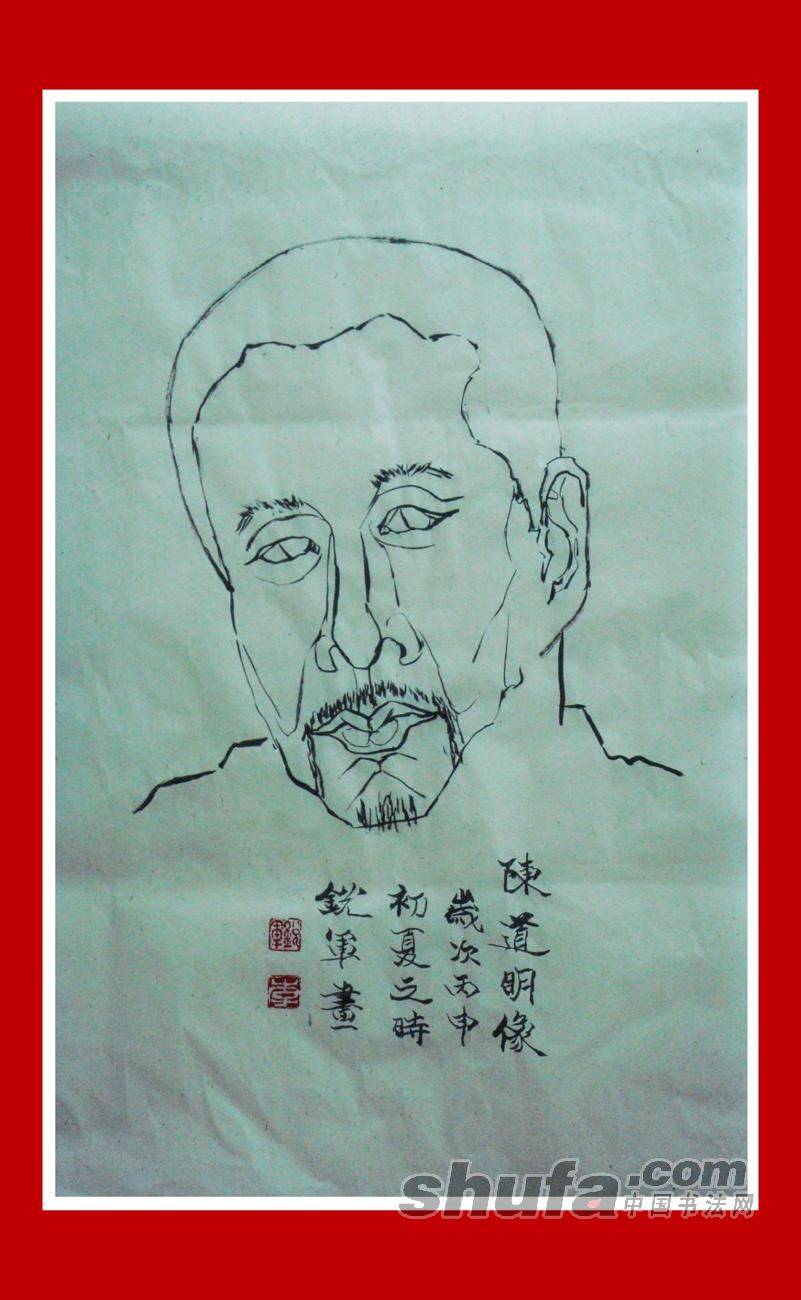 陳道明像
歲次丙申
初夏之時
銳軍畫
銳軍
李
shufa.com
中国书法网